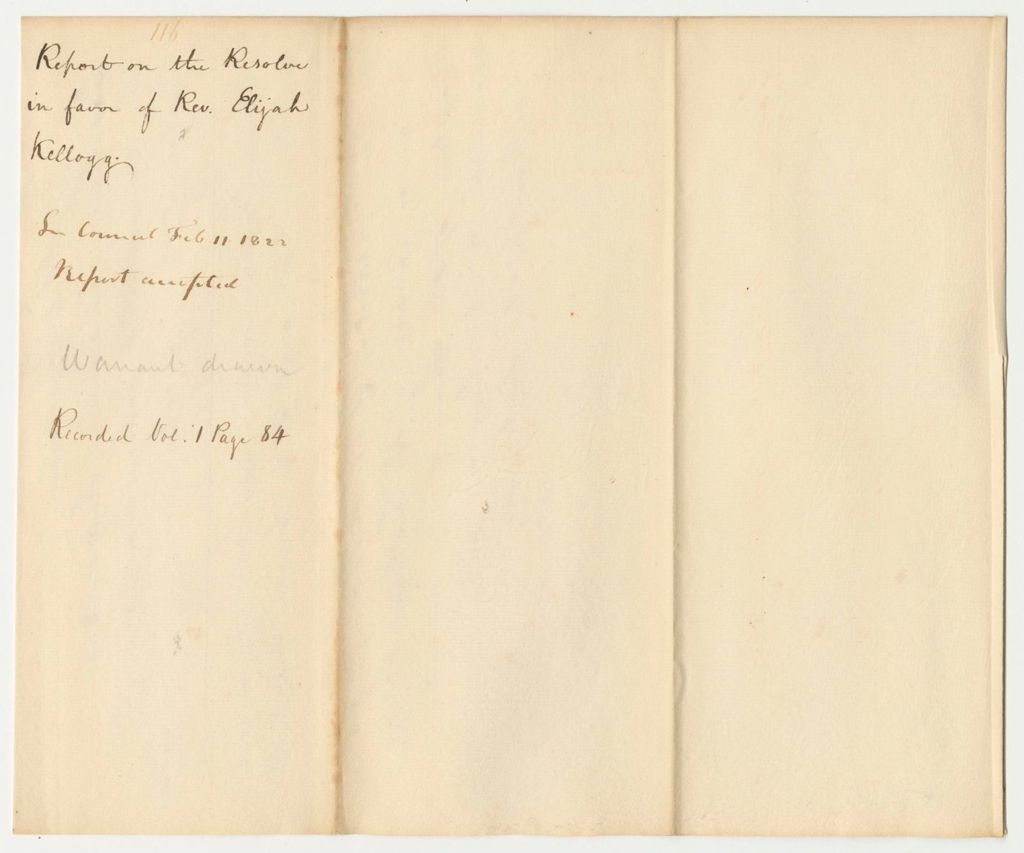 116
Report on the Resolve
in favor of Rev. Elijah
Kellogg.
In Council Feb 11 1822
Report accepted
Warrant drawn
Recorded Vol. 1 Page 84